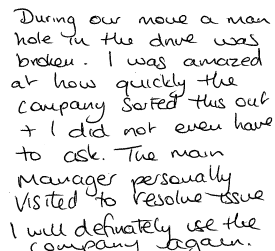 During our move a man
hole in the drive was
broken. I was amazed
at how quickly the
company sorted this out
+ I did not even have
to ask. The main
manager personally
visited to resolve issue
I will definately use the
company again.